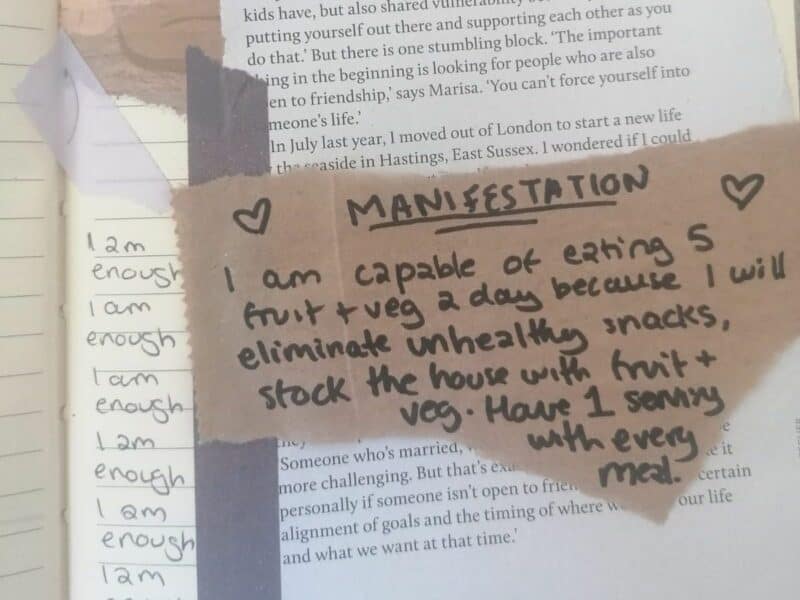 kids have, but also shared vulnerability
putting yourself out there and supporting each other as you
do that.' But there is one stumbling block. 'The important
in the beginning is looking for people who are also
to friendship,' says Marisa. 'You can't force yourself into
life.'
In July last year, I moved out of London to start a new life
seaside in Hastings, East Sussex. I wondered if I could
MANIFESTATION
I am capable of eating 5
fruit + veg a day because I will
eliminate unhealthy snacks,
stock the house with fruit +
veg. Have 1 serving
with every
meal.
I am
enough
I am
enough
I am
enough
I am
enough
I am
enough
I am
Someone who's married,
more challenging. But that's
it
personally if someone isn't open to
certain
alignment of goals and the timing of where
our life
and what we want at that time.'